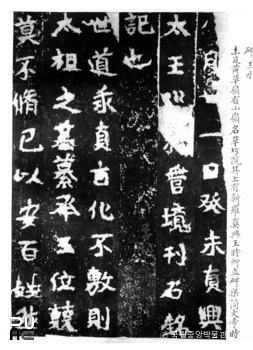 未及黃草嶺有小嶺名草坊院其上有新羅眞興王時所立碑梁簡文帝時
一日癸未眞興
太王巡狩管境刊石銘
記也
世道乖真玄化不敷則
太祖之基纂承王位兢
莫不脩己以安百姓
국립중앙박물관